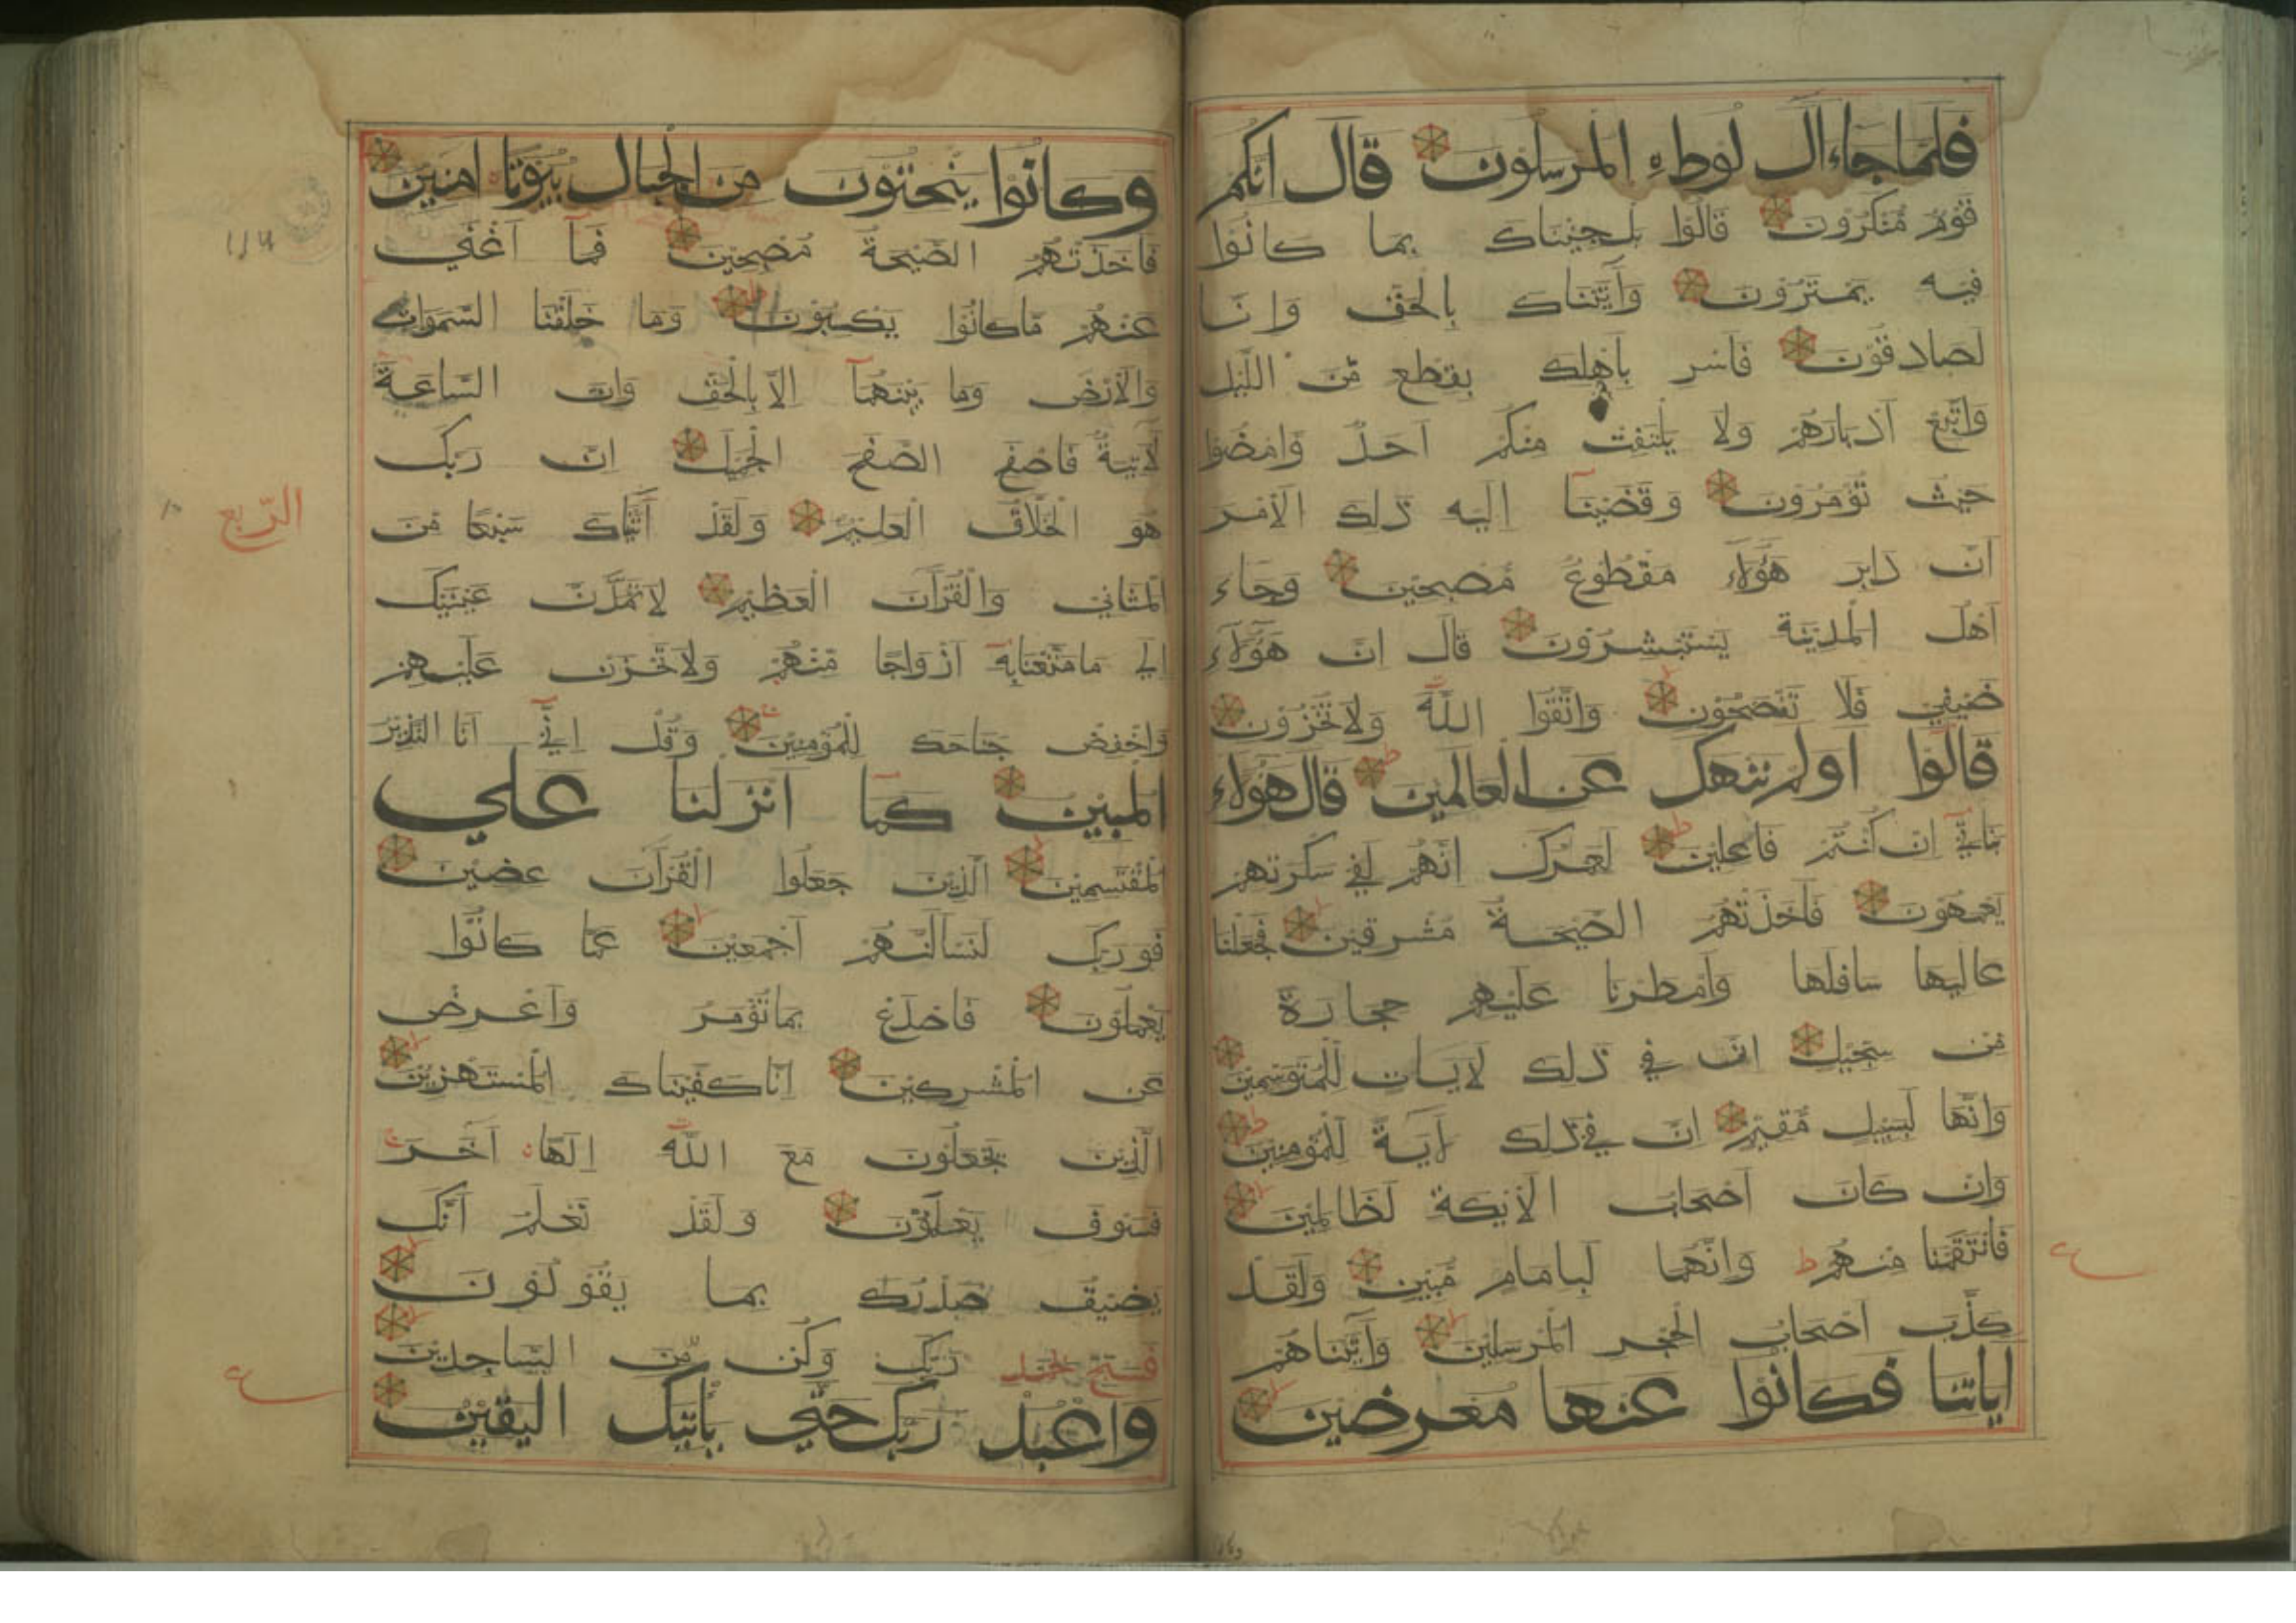 فلما جاء ال لوط المرسلون قال انكم
قوم منكرون قالوا بل جيناك بما كانوا
فيه يمترون وآتيناك بالحق وانا
لصادقون فاسر باهلك بقطع من الليل
واتبع ادبارهم ولا يلتفت منكم احد وامضوا
حيث تؤمرون وقضينا اليه ذلك الامر
ان دابر هؤلاء مقطوع مصبحين وجاء
اهل المدينة يستبشرون قال ان هؤلاء
ضيفي فلا تفضحون واتقوا الله ولا تخزون
قالوا اولم ننهك عن العالمين قال هؤلاء
بناتي ان كنتم فاعلين لعمرك انهم لفي سكرتهم
يعمهون فاخذتهم الصيحة مشرقين فجعلنا
عاليها سافلها وامطرنا عليهم حجارة
من سجيل ان في ذلك لايات للمتوسمين
وانها لبسبيل مقيم ان في ذلك لآية للمؤمنين
وان كان اصحاب الايكة لظالمين
فانتقمنا منهم ط وانهما لبامام مبين ولقد
كذب اصحاب الحجر المرسلين وآتيناهم
اياتنا فكانوا عنها معرضين
وكانوا ينحتون من الجبال بيوتا امنين
فاخذتهم الصيحة مصبحين فما اغني
عنهم ما كانوا يكسبون وما خلقنا السموات
والارض وما بينهما الا بالحق وان الساعة
لآتية فاصفح الصفح الجميل ان ربك
هو الخلاق العليم ولقد آتيناك سبعا من
المثاني والقرآن العظيم لا تمدن عينيك
الي ما متعنا به ازواجا منهم ولا تحزن عليهم
واخفض جناحك للمؤمنين وقل اني انا النذير
المبين كما انزلنا علي
المقتسمين الذين جعلوا القرآن عضين
فوربك لنسالنهم اجمعين عما كانوا
يعملون فاصدع بما تؤمر واعرض
عن المشركين انا كفيناك المستهزين
الذين يجعلون مع الله الها اخر
فسوف يعلمون ولقد نعلم انك
يضيق صدرك بما يقولون
فسبح بحمد ربك وكن من الساجدين
واعبد ربك حتي ياتيك اليقين
الربع